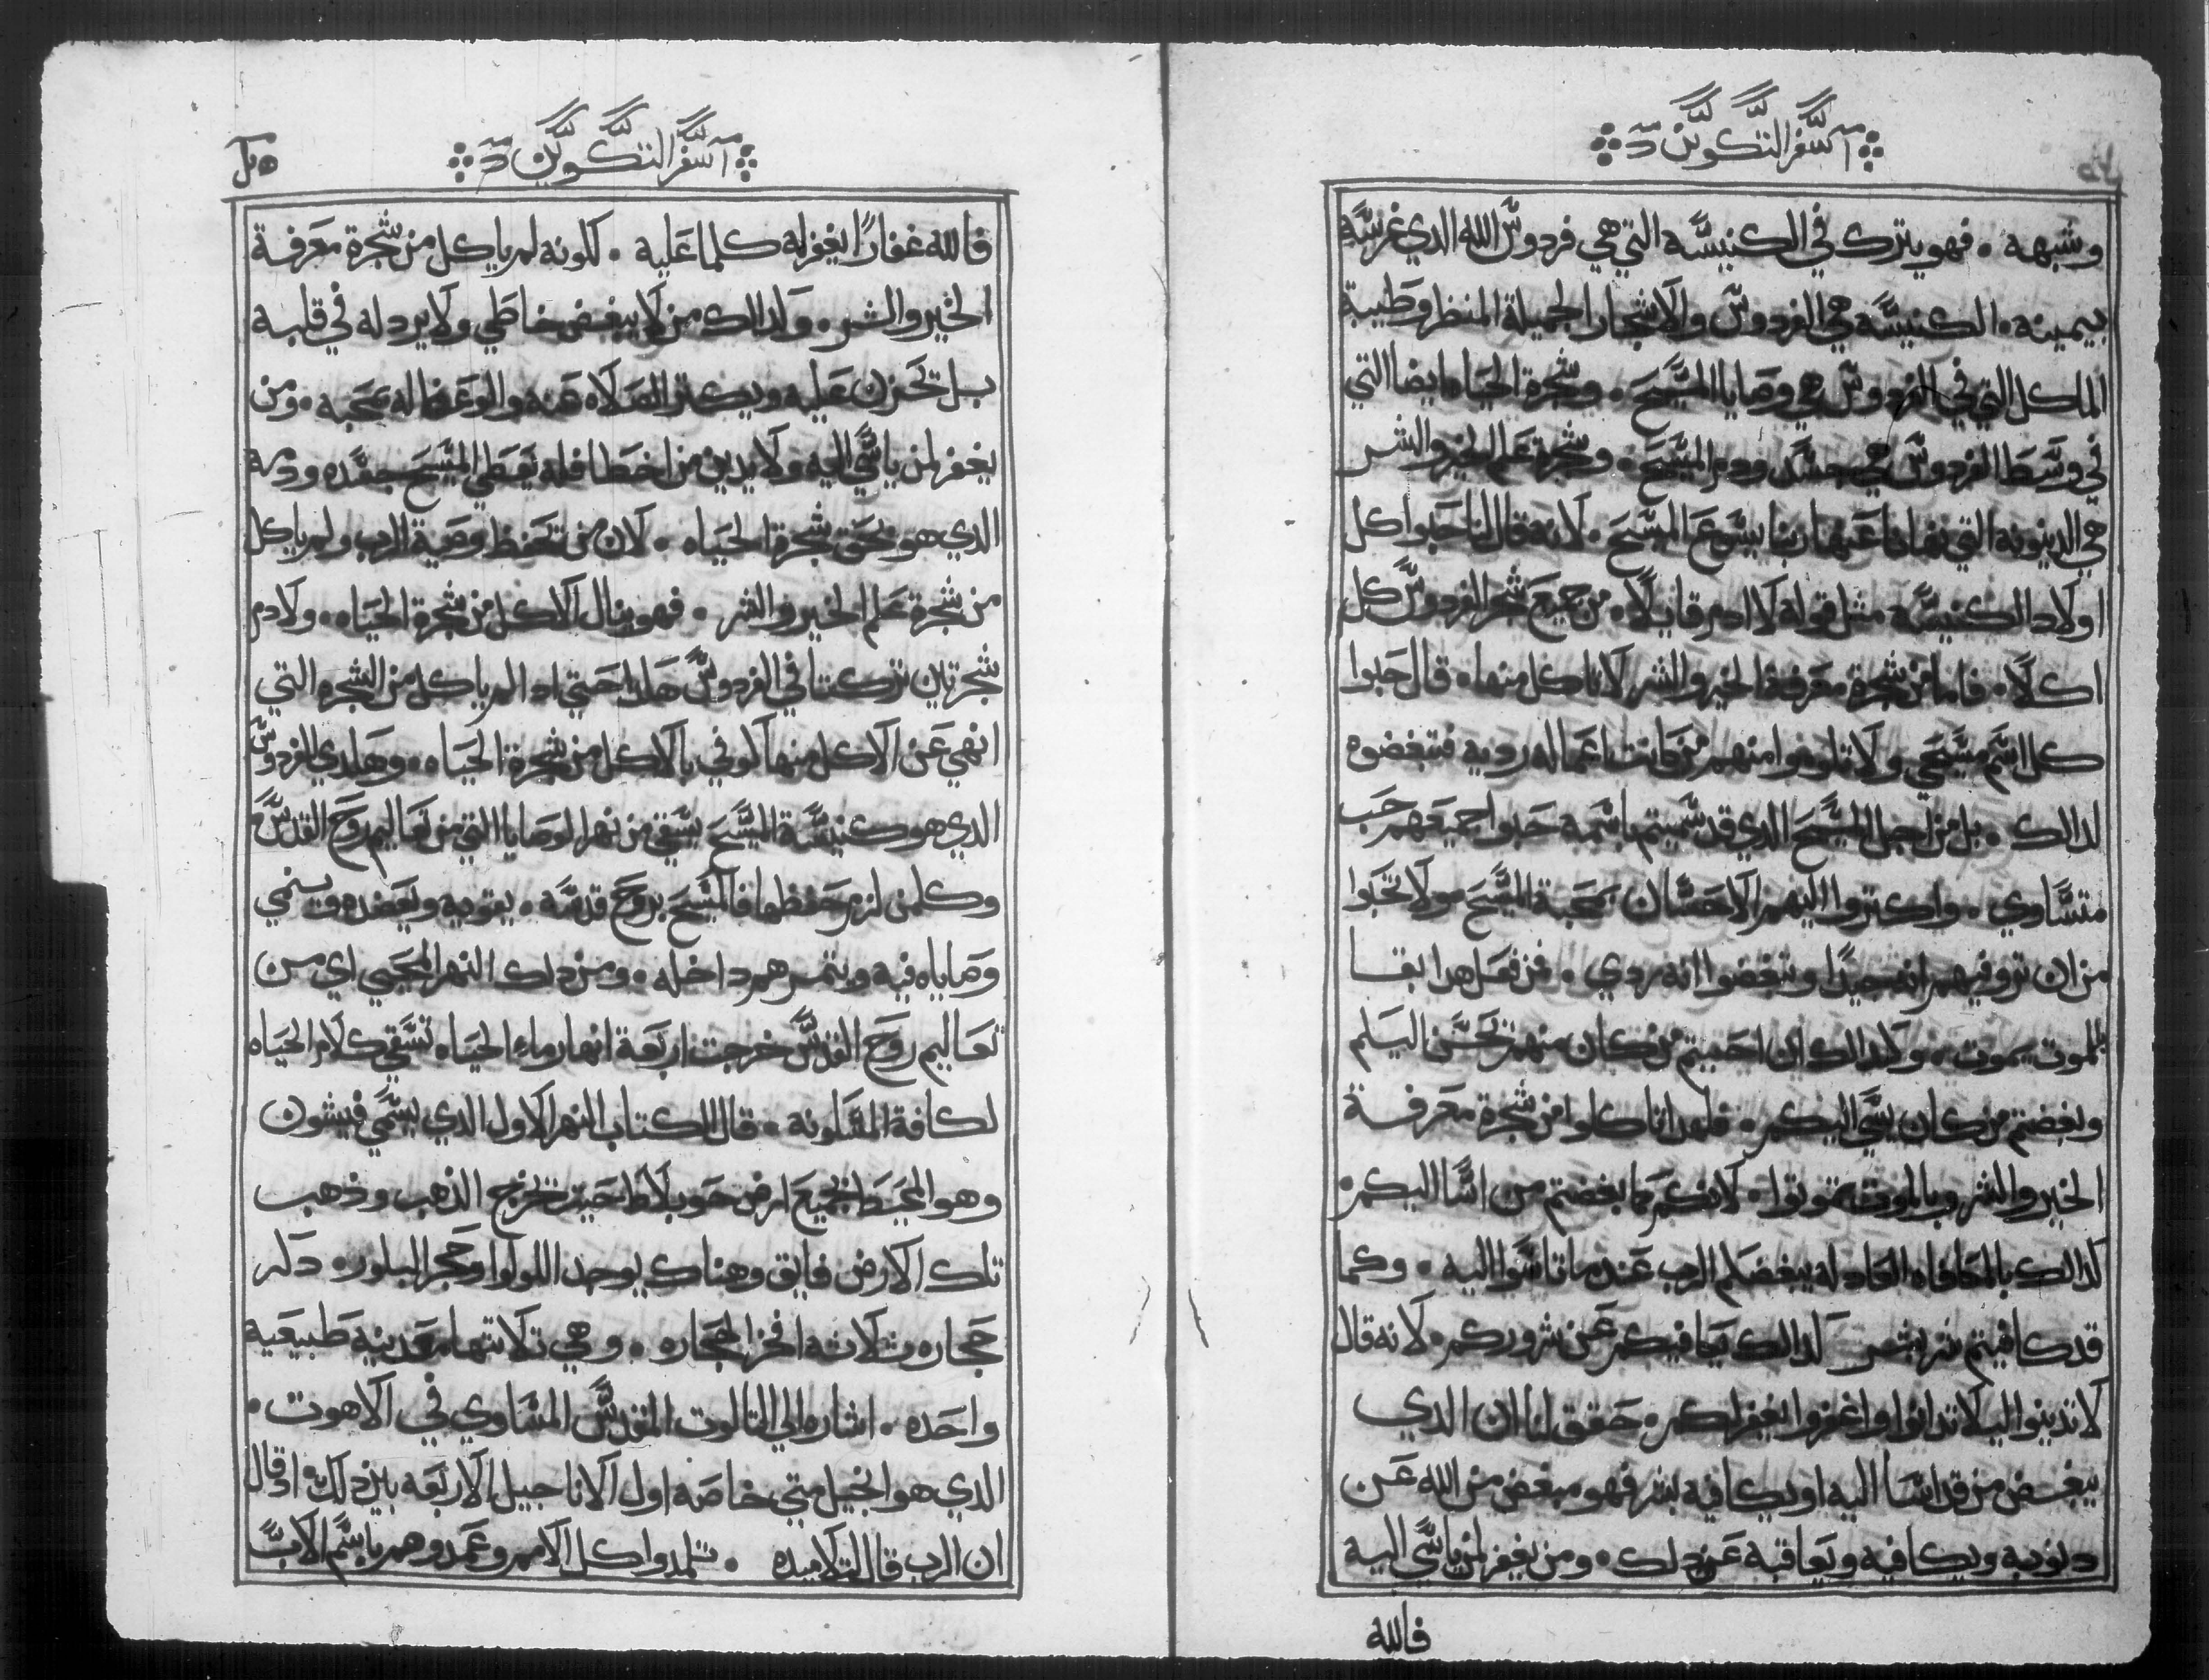 سفر التكوين
وشبهه . فهو يترك في الكنيسه التي هي فردوس الله الدي غرسه
بيمينه . الكنيسه هي الفردوس والاشجار الجميلة المنظر وطيبة
الماكل التي في الفردوس هي وصايا المسيح . وشجرة الحياه ايضا التي
في وسط الفردوس هي جسد ودم المسيح . وشجرة علم الخير والشر
هي الدينونه التي نهانا عنها ربنا يسوع المسيح . لانه قال لنا حبوا كل
اولاد الكنيسه مثل قوله لادم قايلاً . من جميع شجر الفردوس كل
اكلاً . فاما من شجرة معرفة الخير والشر لا تاكل منها . قال حبوا
كل اسم مسيحي ولا تلوموا منهم من كانت اعماله رديه فتبغضوه
لدالك . بل من اجل المسيح الدي قد سميتم باسمه حبوا جميعهم حب
متساوي . واكتروا اليهم الاحسان بمحبة المسيح ولا تحبوا
من ان تروفيهم انه جيدًا وتبغضوا انه ردي . فمن فعل هدا بقا
بالموت يموت . ولدالك ان احببتم من كان منهم يحسن اليكم
وبغضتم من كان يسي اليكم . فلهدا تاكلوا من شجرة معرفة
الخير والشر وبالموت تموتوا . لانكم كما بغضتم من اسا اليكم
كدالك بالمكافاه العادله يبغضكم الرب عندما تاسوا اليه . وكما
قد كافيتم شر بشر كدالك يكافيكم عن شروركم . لانه قال
لا تدينوا ليلا تدانوا واغفروا يغفر لكم . حقق لنا ان الدي
يبغض من قد اسا اليه او يكافيه بشر فهو مبغض من الله عن
دنوبه ويكافيه ويعاقبه عن دلك . ومن يغفر لمن ياسي اليه
فالله
سفر التكوين
فالله غفارًا يغفر له كلما عليه . كونه لم ياكل من شجرة معرفة
الخير والشر . ولدالك من لا يبغض خاطي ولا يرد له في قلبه
بل تحزن عليه ويكتر الصلاه عنه والوعظ له بمحبه . ومن
يغفر لمن ياسي اليه ولا يدين من اخطا فله يعطي المسيح جسده ودمه
الدي هو بحق شجرة الحياه . لان من تحفظ وصية الرب ولم ياكل
من شجرة علم الخير والشر . فهو ينال الاكل من شجرة الحياه . ولادم
شجرتان تركتا في الفردوس هكدا حتي ادا لم ياكل من الشجره التي
انهي عن الاكل منها كوفي بالاكل من شجرة الحياه . وهكدي الفردوس
الدي هو كنيسة المسيح يسقي من نهر الوصايا التي من تعاليم روح القدس
وكلمن لزم حفظها فالمسيح بروح قدسه . يقويه ويعضده وينمي
وصاياه فيه ويتمرهم داخله . ومن دلك النهر المحيي اي من
تعاليم روح القدس خرجت اربعة انهار ماء الحياه تسقي كلام الحياه
لكافة المسكونه . قال الكتاب النهر الاول الدي يسمي فيشون
وهو المحيط بجميع ارض حويلاط حيت يخرج الذهب وذهب
تلك الارض فايق وهناك يوجد اللولو وحجر البلور . دكر
حجاره تلاته افخر الحجاره . وهي تلاتها معدنيه طبيعيه
واحده . اشاره الي التالوت المقدس المساوي في الاهوت .
الدي هو انجيل متي خاصه اول الاناجيل الاربعه بين دلك . اد قال
ان الرب قال لتلاميده . تلمدوا كل الامم وعمدوهم باسم الاب